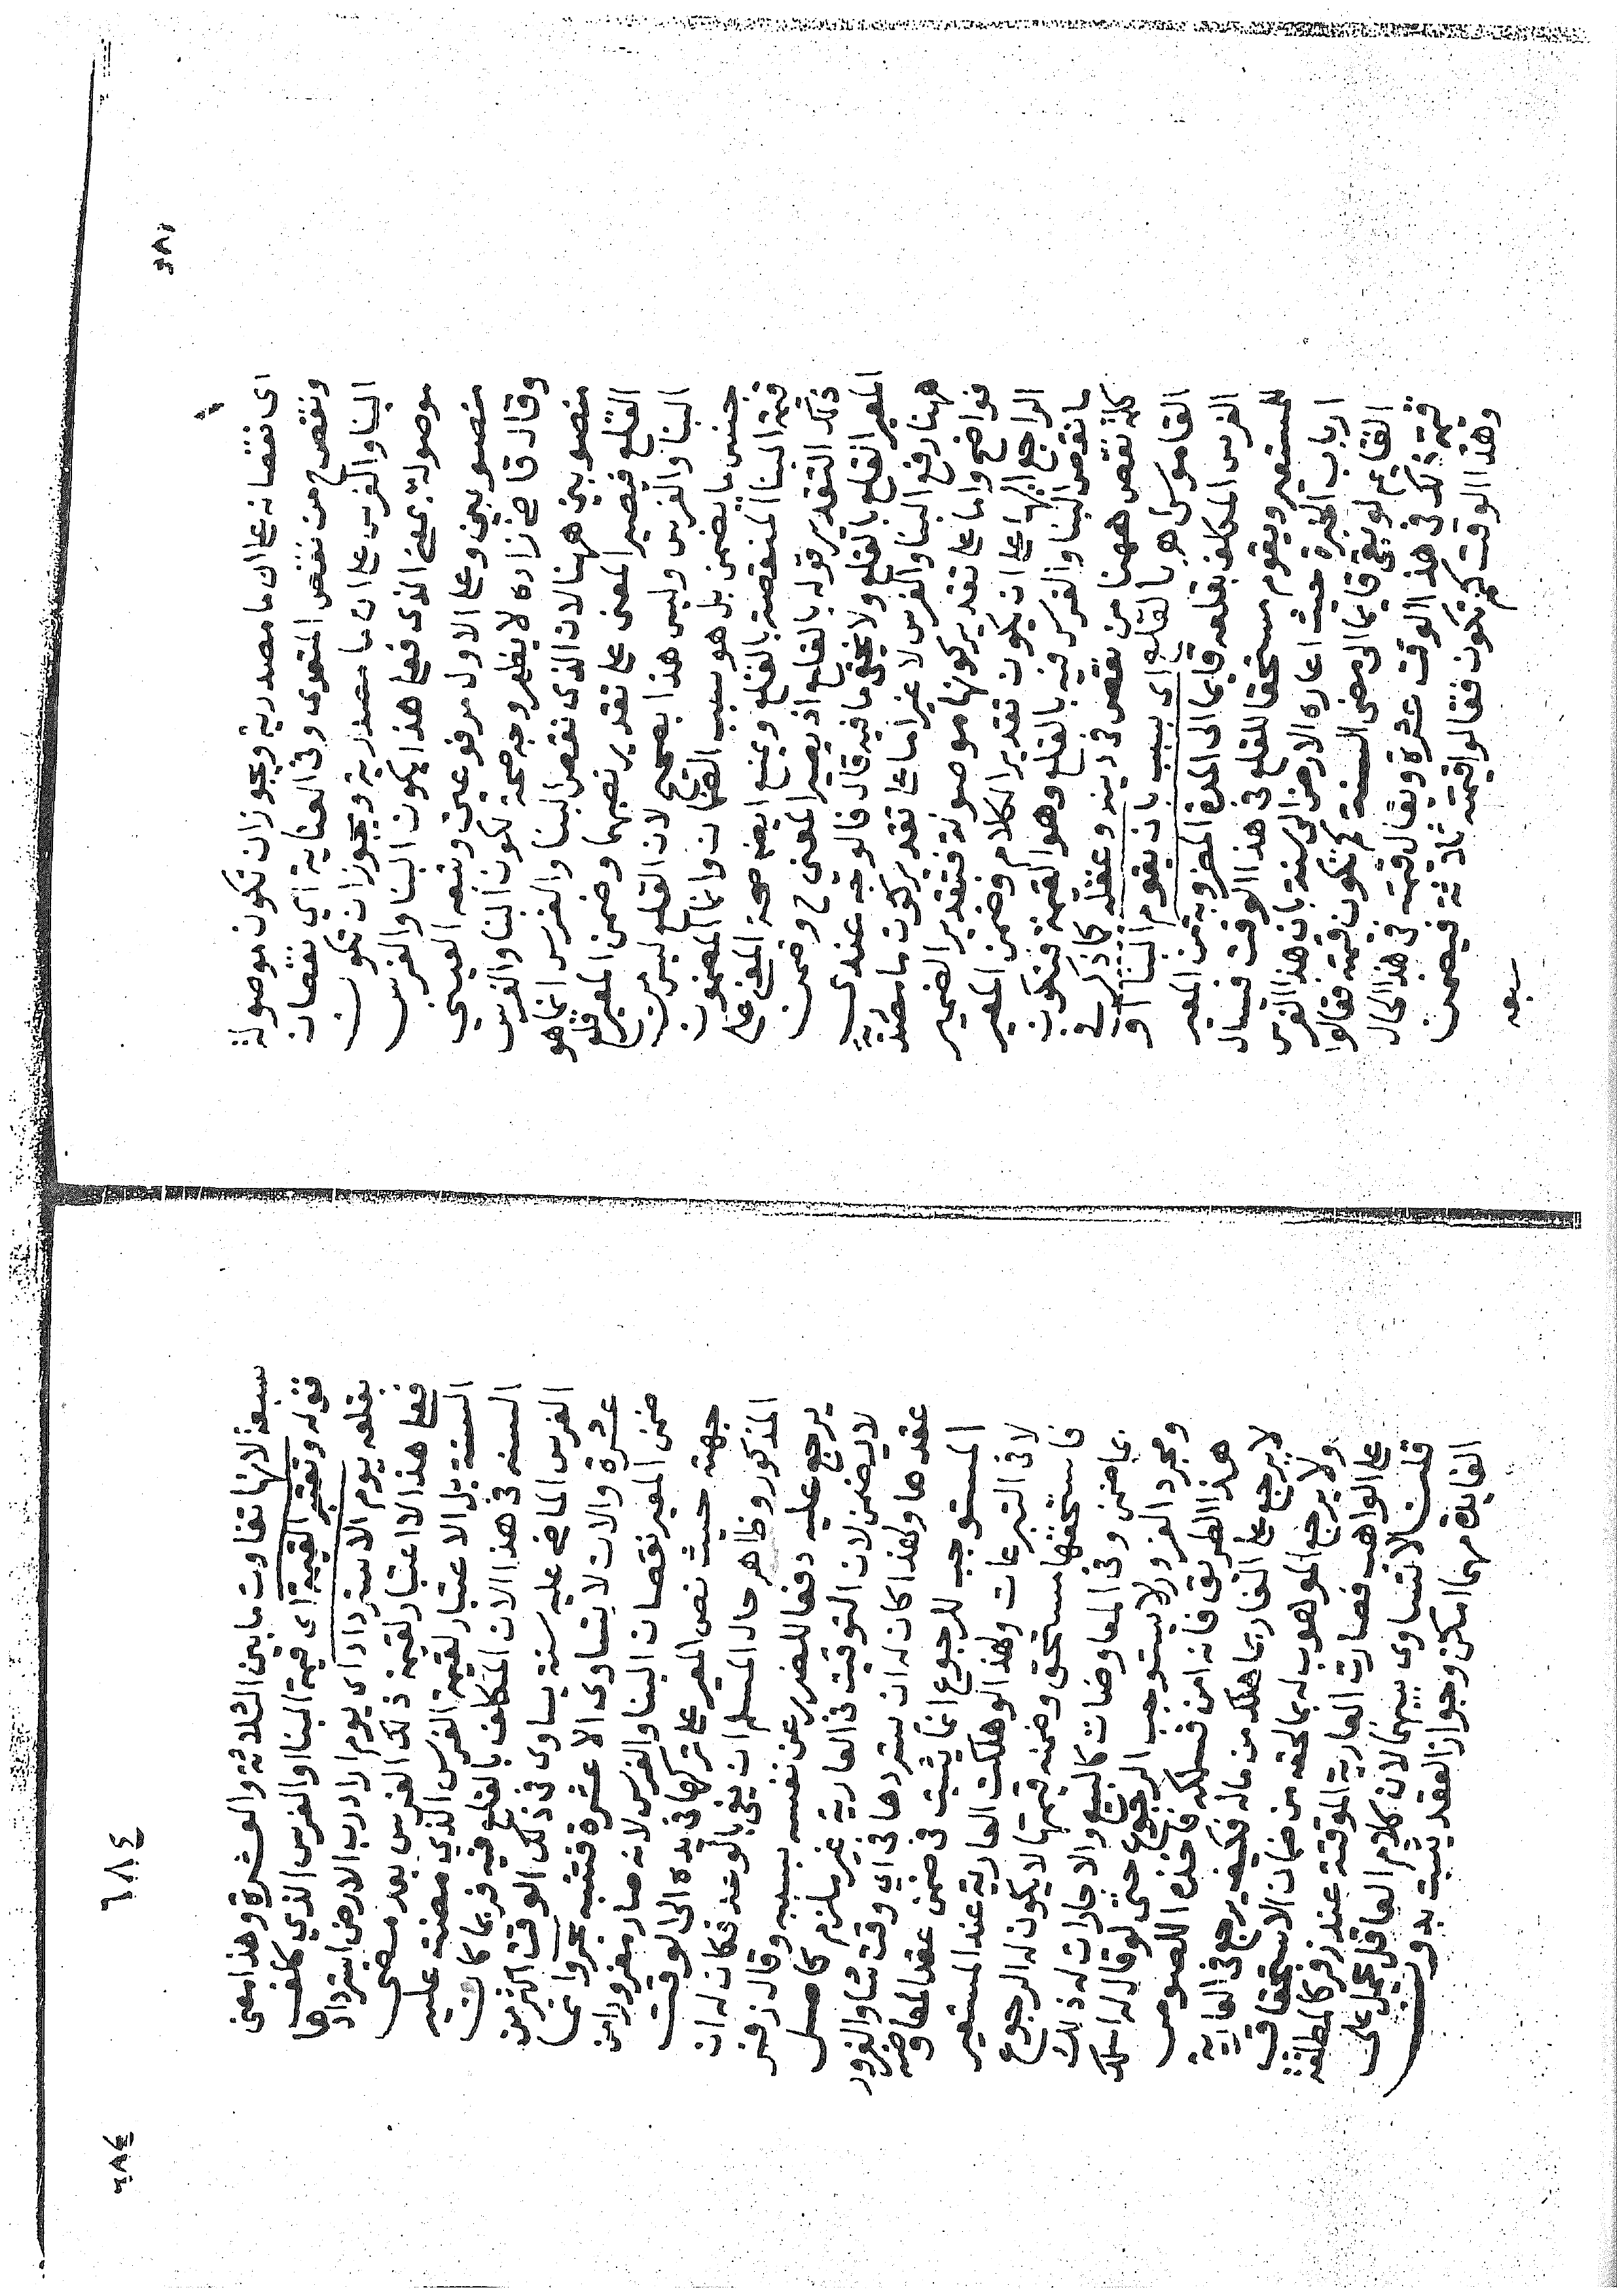 اى نقصانه على ان ما مصدرية ويجوز ان تكون موصولة
ونقص من نقص المتعدى وفى العناية اي نقصان
البنا والغرس على ان ما مصدرية ويجوز ان تكون
موصولة بمعنى الذى فعلى هذا يكون البنا والغرس
منصوبين وعلى الاول مرفوعين وتبعه العينى
وقال قاضى زاده لا يظهر وجه صحة لكون البنا والغرس
منصوبين ههنا لان الذى نقص البنا والغرس انما هو
القلع فيصير المعنى على تقدير نصبهما وضمن المعير قلع
البنا والغرس وليس هذا بصحيح لان القلع ليس من
جنس ما يضمن بل هو سبب الضمان وانما المضمون
قيمة البنا المنتقصة بالقلع ويمنع ايضه صحة المعنى على
ذلك التقدير قوله بالقلع اذ يصير المعنى ح وضمن
المعير القلع بالقلع ولا يخفى ما فيه قال فالوجه عندى
ههنا رفع البنا والغرس لا غير اما على تقدير كون ما مصدرية
فواضح واما على تقدير كونها موصولة فبتقدير الضمير
الراجع اليها على ان يكون تقدير الكلام وضمن المعير
ما نقص البنا والغرس فيه بالقلع وهو القيمة فتكون
كلمة نقص ههنا من نقص فى دينه وعقله كما ذكر في
القاموس اهـ بالقلع اى بسبب بان يقوم البنا او
الغرس المكلف بقلعه قايما الى المدة المضروبة من المعير
للمستعير ويقوم مستحقا للقلع فى هذا الوقت فيسال
ارباب الخبرة حيث اعاره الارض الى سنة بان هذا الغرس
القايم لو بقى قايما الى مضى السنة كم تكون قيمته فقالوا
قيمة ذلك فى هذا الوقت عشرة ويقال قيمته فى هذا الحال
وهذا الوقت كم تكون فقالوا قيمته ثلاثة فيضمن
سبعه
٦٨٤
سبعة لانها تفاوت ما بين الثلاثة والعشرة وهذا معنى
قوله وتعتبر القيمة اى قيمة البنا والغرس الذي كلف
بقلعه يوم الاسترداد اى يوم اراد رب الارض استردادها
فعلى هذا الاعتبار لقيمة ذلك الغرس بعد مضى
السنة بل الاعتبار لقيمة الغرس الذي مضت عليه
السنه فى هذا الان المكلف بالقلع فيه فربما كان
الغرس الماضى عليه سنة يساوى فى ذلك الوقت اكثر من
عشرة والان لا يساوى الا عشرة فتنبه
ضمن المعير نقصان البنا والغرس لانه صار مغرورا من
جهته حيث نص المعير على تركها فى يده الى الوقت
المذكور وظاهر حال المسلم ان يفى بالوعد فكان له ان
يرجع عليه دفعا للضرر عن نفسه بسببه وقال زفر
لا يضمن لان التوقيت فى العارية غير ملزم كاصل
عقدها ولهذا كان له ان يستردها فى اي وقت شا والغرور
المستوجب للرجوع انما يثبت فى ضمن عقد المعاوضه
لا فى التبرعات ولهذا لو هلكت العارية عند المستعير
فاستحقها مستحق وضمنه قيمتها لا يكون له الرجوع
بما ضمن وفى المعاوضات كالبيع والاجارات له ذلك
ومجرد الغرور لا يستوجب الرجوع حتى لو قال له اسلك
هذا الطريق فانه امن فسلكه فاخذه اللصوص
لا يرجع على الغار بما هلك من ماله فكيف يرجع فى العارية
ولا يرجع الموهوب له بما لحقه من ضمان الاستحقاق
على الواهب فصارت العارية الموقتة عند زفر كالمطلقة
قلت لا تساوى بينهما لان كلام العاقل يحمل على
الفايدة مهما امكن وجواز العقد يثبت بدون
٦٨٤